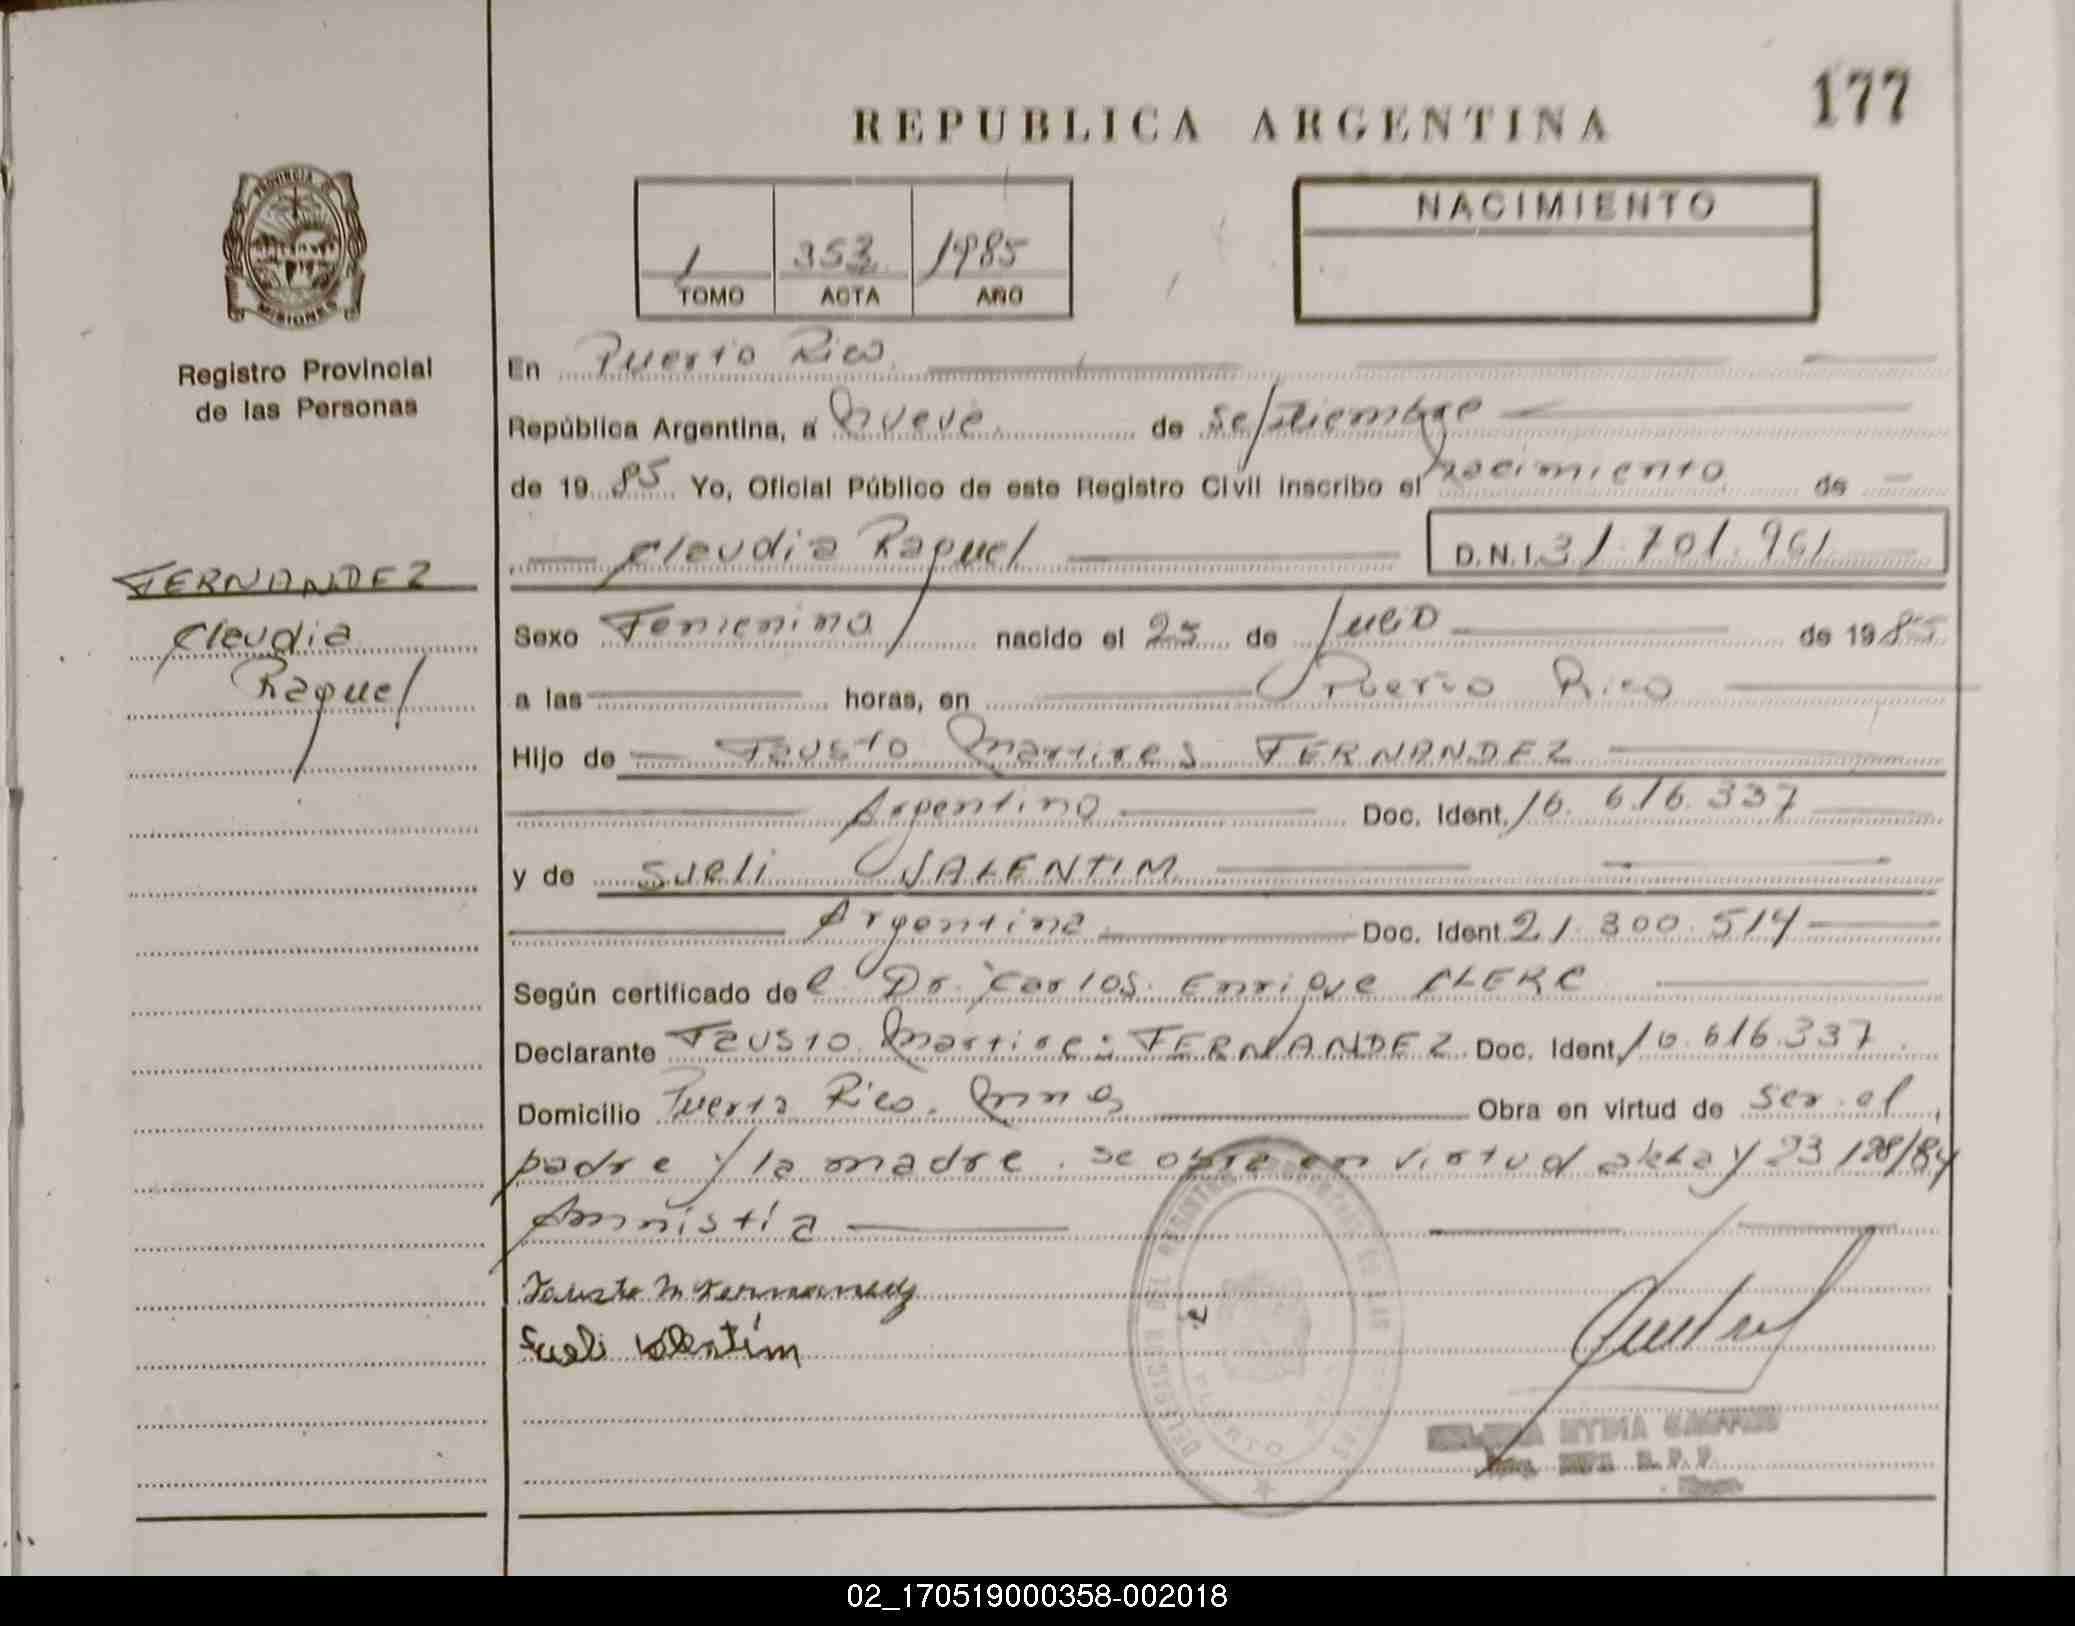 177
REPUBLICA ARGENTINA
PROVINCIA DE
MISIONES
Registro Provincial
de las Personas
FERNANDEZ
Claudia
Raquel
1 353 1985
TOMO ACTA AÑO
NACIMIENTO
En Puerto Rico
República Argentina, a Nueve de Septiembre
de 1985 Yo, Oficial Público de este Registro Civil inscribo el nacimiento de
Claudia Raquel D.N.I. 31.701.961
Sexo Femenino nacido el 25 de Julio de 1985
a las horas, en Puerto Rico
Hijo de Fausto Martires FERNANDEZ
Argentino Doc. Ident. 16.616.337
y de Sueli VALENTIM
Argentina Doc. Ident 21.300.514
Según certificado del Dr. Carlos Enrique CLERC
Declarante Fausto Martires FERNANDEZ Doc. Ident. 16.616.337
Domicilio Puerto Rico, Mnes Obra en virtud de Ser el
padre y la madre. Se obra en virtud Ley 23 128/84
Amnistía
Fausto M Fernandez
Sueli Valentím
02_170519000358-002018